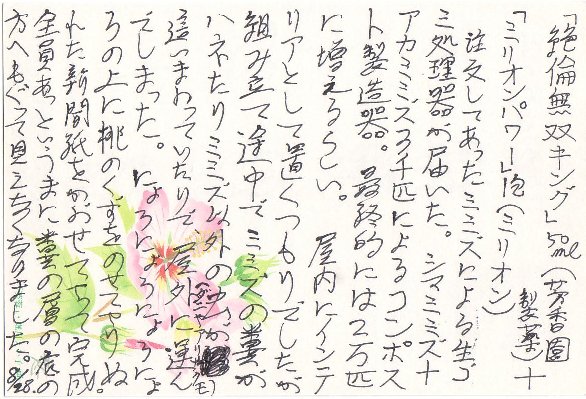 「絶倫無双キング」50ml(芳香園
製薬)+
「ミリオンパワー」1包(ミリオン)
注文してあったミミズによる生ゴ
ミ処理器が届いた。シマミミズ+
アカミミズ3千匹によるコンポス
ト製造器。最終的には2万匹
に増えるらしい。屋内にインテ
リアとして置くつもりでしたが
組み立て途中でミミズの糞が
ハネたりミミズ以外の虫が
這いまわっていたりで屋外へ運ん
でしまった。にょろにょろにょろにょ
ろの上に桃のくずをのせてやりぬ
れた新聞紙をかぶせてやって完成。
全員あっというまに糞の層の底の
方へもぐって見えなくなりました。8/28.